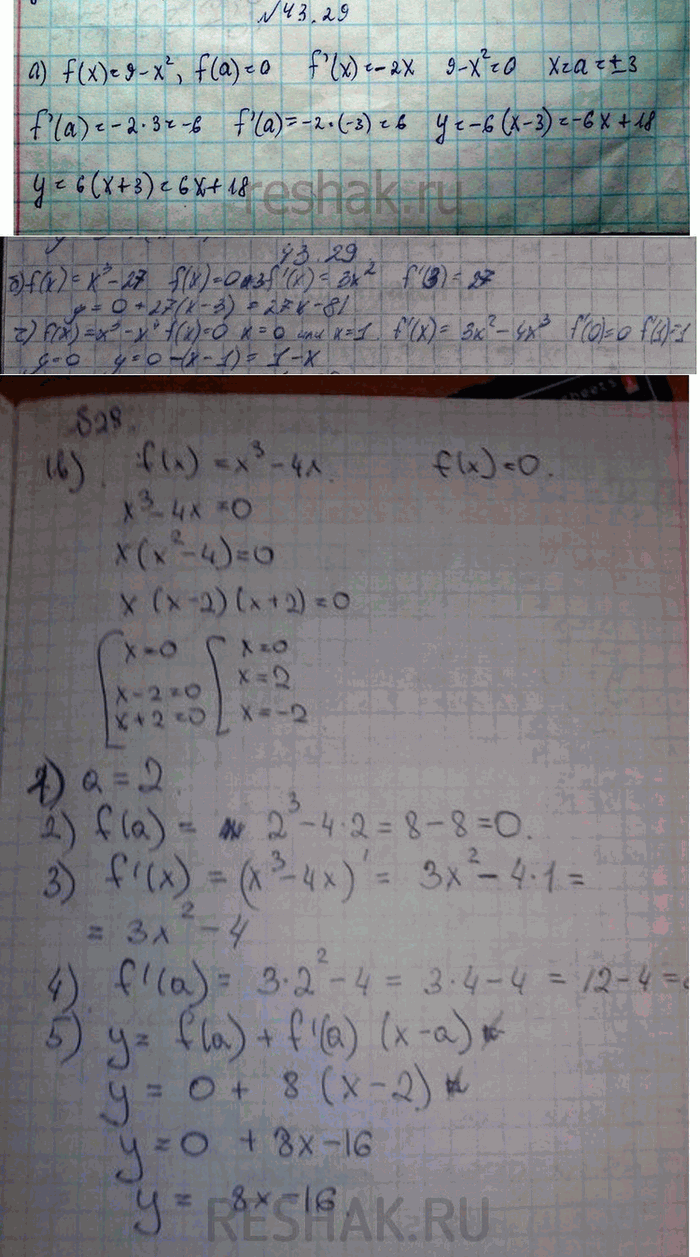 №43.29
а) f(x)=9-x², f(a)=0 f'(x)=-2x 9-x²=0 x=a=±3
f'(a)=-2·3=-6 f'(a)=-2·(-3)=6 y=-6(x-3)=-6x+18
y=6(x+3)=6x+18
reshak.ru
43.29
б) f(x)=x³-27 f(x)=0 x=3 f'(x)=3x² f'(3)=27
y=0+27(x-3)=27x-81
г) f(x)=x³-x⁴ f(x)=0 x=0 или x=1 f'(x)=3x²-4x³ f'(0)=0 f'(1)=1
y=0 y=0-(x-1)=1-x
828.
(в) f(x)=x³-4x. f(x)=0.
x³-4x=0
x(x²-4)=0
x(x-2)(x+2)=0
x=0 x=0
x-2=0 x=2
x+2=0 x=-2
1) a=2
2) f(a)= 2³-4·2=8-8=0.
3) f'(x)=(x³-4x)'= 3x²-4·1=
=3x²-4
4) f'(a)= 3·2²-4=3·4-4=12-4=
5) y= f(a)+f'(a)(x-a)
y= 0+ 8(x-2)
y=0 +8x-16
y= 8x-16.
RESHAK.RU